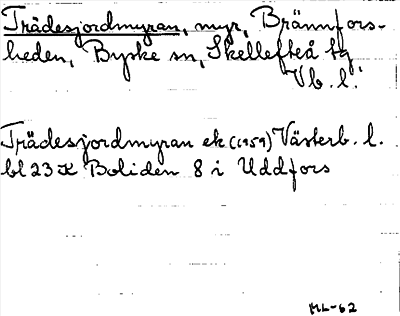 Trädesjordmyran, myr, Brännfors-
heden, Byske sn, Skellefteå tg
Vb. l.
Trädesjordmyran ek (1959) Västerb. l.
bl 23 K Boliden 8 i Uddfors
ML-62